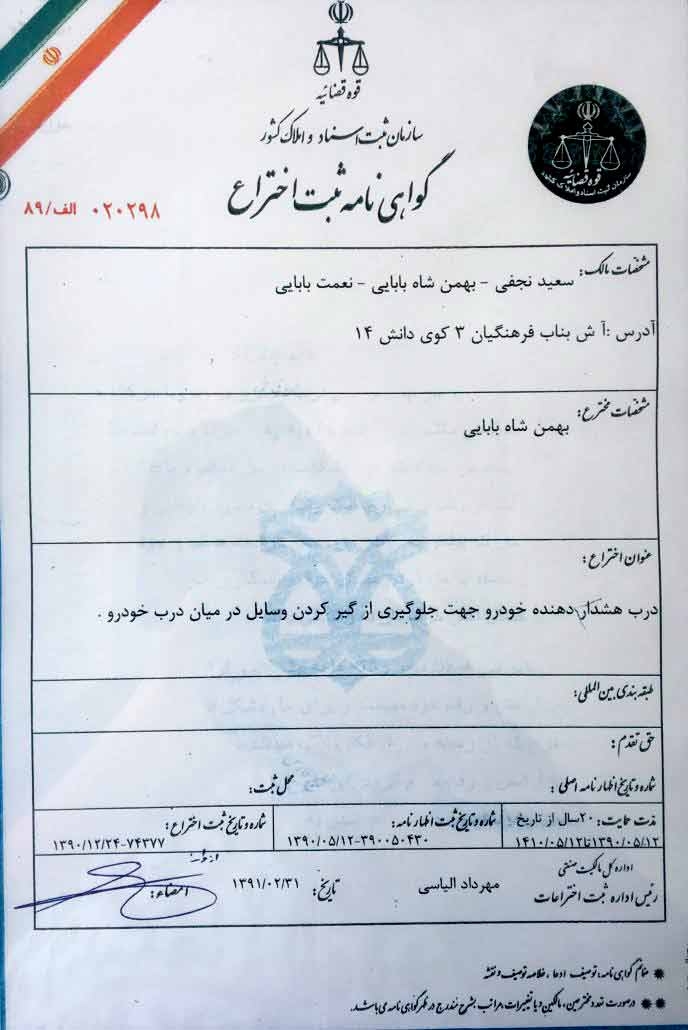 قوه قضائیه
سازمان ثبت اسناد و املاک کشور
گواهی نامه ثبت اختراع
قوه قضائیه
سازمان ثبت اسناد و املاک کشور
۰۲۰۲۹۸ الف/۸۹
مشخصات مالک: سعید نجفی - بهمن شاه بابایی - نعمت بابایی
آدرس :آ ش بناب فرهنگیان ۳ کوی دانش ۱۴
مشخصات مخترع: بهمن شاه بابایی
عنوان اختراع:
درب هشدار دهنده خودرو جهت جلوگیری از گیر کردن وسایل در میان درب خودرو .
طبقه بندی بین المللی:
حق تقدم:
شماره و تاریخ اظهارنامه اصلی: محل ثبت:
مدت حمایت: ۲۰سال از تاریخ
۱۳۹۰/۰۵/۱۲تا۱۴۱۰/۰۵/۱۲
شماره و تاریخ ثبت اظهارنامه:
۱۳۹۰/۰۵/۱۲-۳۹۰۰۵۰۴۳۰
شماره و تاریخ ثبت اختراع:
۱۳۹۰/۱۲/۲۴-۷۴۳۷۷
اداره کل مالکیت صنعتی
رئیس اداره ثبت اختراعات مهرداد الیاسی تاریخ: ۱۳۹۱/۰۲/۳۱ امضاء:
گواهی نامه، توصیف ادعا، خلاصه توصیف و نقشه
در صورت تعدد مخترعین، مالکین و یا تغییرات، مراتب بشرح مندرج در ظهر گواهی نامه می باشد.